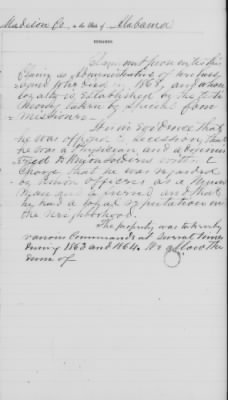 Madison Co. in the State of Alabama
REMARKS.
Claimant prosecutes this
claim as Administratrix of her husband
who died in 1868, and whose
loyalty is established by the tes-
timony taken by special com-
missioner.
It is in evidence that
he was opposed to secession, that
he was a physician, and
to Union soldiers without
charge that he was regarded
by Union officers as a Union
man and a friend, and that
he had a loyal reputation in
the neighborhood.
The property was taken by
various commands at several times
during 1863 and 1864. We allow the
sum of